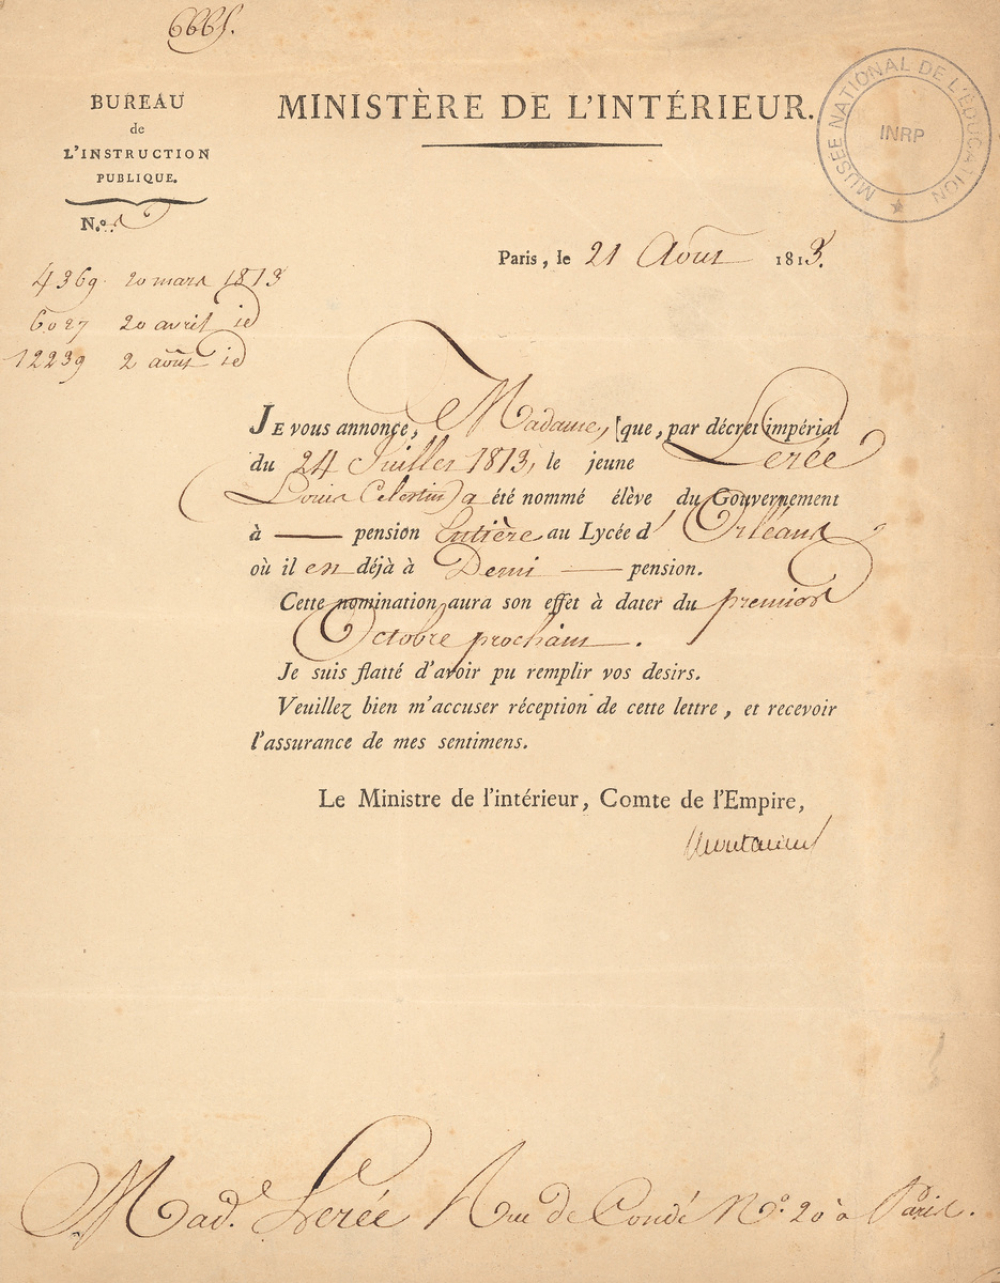 6665.
BUREAU
de
L'INSTRUCTION
PUBLIQUE.
N.º
MINISTÈRE DE L'INTÉRIEUR.
MUSEE NATIONAL DE L'ÉDUCATION
INRP
Paris, le 21 Août 1813.
4369 20 mars 1813
6027 20 avril id
12239 2 août id
JE vous annonce, Madame, que, par décret impérial
du 24 Juillet 1813, le jeune Lerée
(Louis Celestin) a été nommé élève du Gouvernement
à — pension Entière au Lycée d'Orléans
où il est déjà à Demi — pension.
Cette nomination aura son effet à dater du premier
Octobre prochain.
Je suis flatté d'avoir pu remplir vos desirs.
Veuillez bien m'accuser réception de cette lettre, et recevoir
l'assurance de mes sentimens.
Le Ministre de l'intérieur, Comte de l'Empire,
Montalivet
Mad.e Lerée Rue de Condé N.º 20 à Paris.